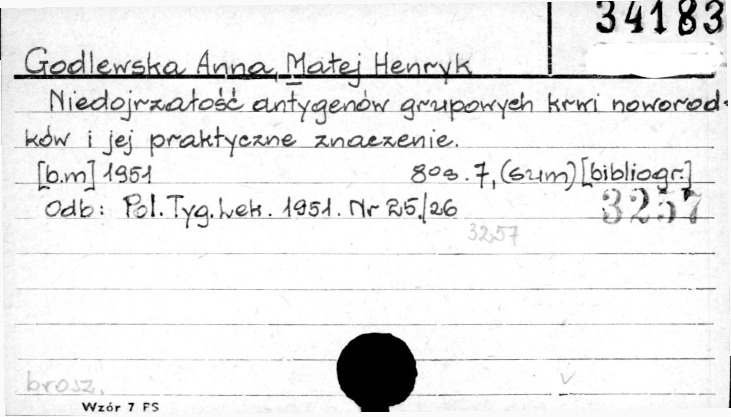 34183
Godlewska Anna, Matej Henryk
Niedojrzałość antygenów grupowych krwi noworod-
ków i jej praktyczne znaczenie.
[b.m] 1951 8os. 7, (sum) [bibliogr.]
Odb: Pol. Tyg. Lek. 1951. Nr 25./26 3257
3257
brosz.
Wzór 7 FS